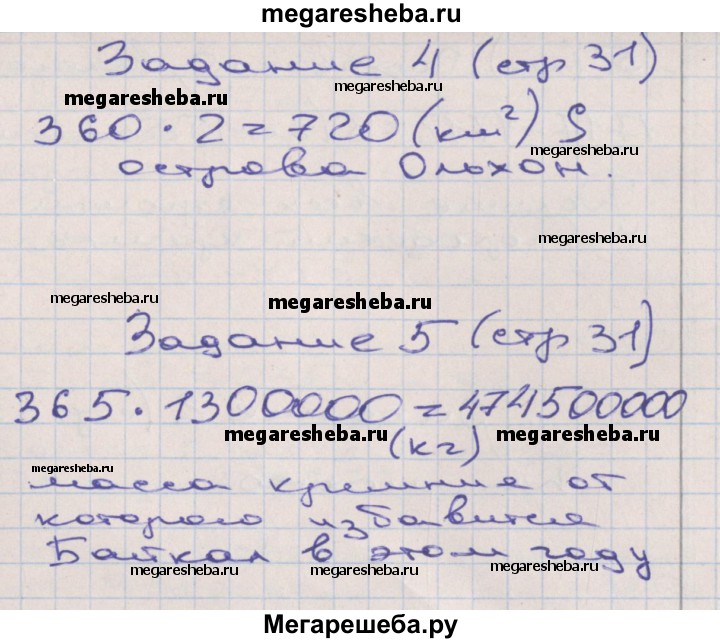 megaresheba.ru
Задание 4 (стр 31)
megaresheba.ru
megaresheba.ru
360 · 2 = 720 (км²) S
megaresheba.ru
острова Ольхон.
megaresheba.ru
megaresheba.ru
megaresheba.ru
Задание 5 (стр 31)
365 · 1300000 = 474500000
megaresheba.ru
(кг)
megaresheba.ru
megaresheba.ru
масса кремния от
которого избавится
Байкал в этом году
megaresheba.ru
megaresheba.ru
megaresheba.ru
Мегарешеба.ру